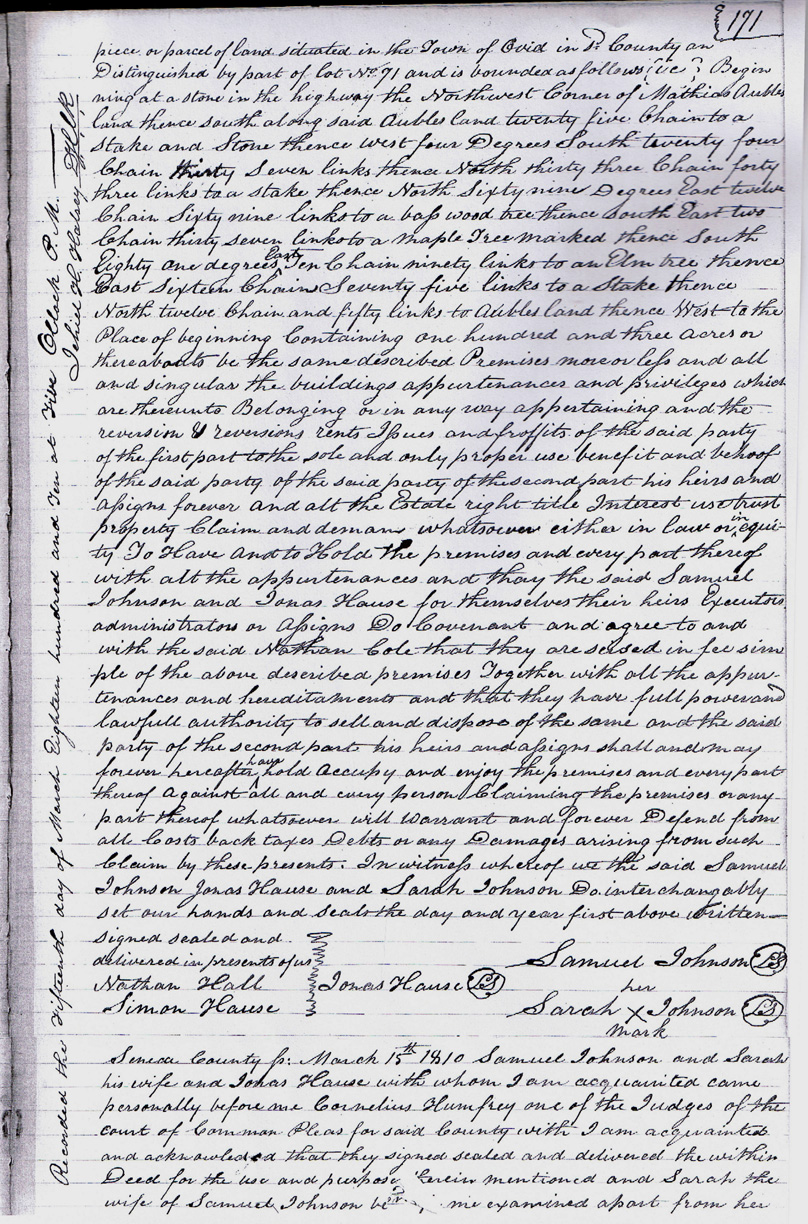 171
piece or parcel of land situated in the Town of Ovid in sd. County an
Distinguished by part of lot No. 71 and is bounded as follows (vc) Begin
ning at a stone in the highway the Northwest Corner of Mathias Aubles
land thence south along said Aubles land twenty five Chain to a
Stake and Stone thence west four Degrees South twenty four
Chain thirty Seven links thence North thirty three Chain forty
three links to a stake thence North Sixty nine Degrees East twelve
Chain Sixty nine links to a bass wood tree thence South East two
Chain thirty seven links to a Maple Tree marked thence South
Eighty one degrees East Ten Chain ninety links to an Elm tree thence
East Sixteen Chain Seventy five links to a Stake thence
North twelve Chain and fifty links to Aubles land thence West to the
Place of beginning Containing one hundred and three Acres or
thereabouts be the same described Premises more or less and all
and singular the buildings appurtenances and privileges which
are thereunto Belonging or in any way appertaining and the
reversion & reversions rents Issues and proffits of the said party
of the first part to the sole and only proper use benefit and behoof
of the said party of the said party of the second part his heirs and
assigns forever and all the Estate right title Interest use trust
property Claim and deman whatsoever either in law or in equi-
ty To Have and to Hold the premises and every part thereof
with all the appurtenances and thay the said Samuel
Johnson and Jonas Hause for themselves their heirs Executors
administrators or Assigns Do Covenant and agree to and
with the said Nathan Cole that they are seised in fee sim
ple of the above described premises Together with all the appur-
tenances and hereditaments and that they have full power and
lawfull authority to sell and dispose of the same and the said
party of the second part his heirs and assigns shall and may
forever hereafter have hold Accupy and enjoy the premises and every part
thereof against all and every person Claiming the premises or any
part thereof whatsoever will Warrant and forever Defend from
all Costs back taxes Debts or any Damages arising from such
Claim by these presents. In witness whereof we the said Samuel
Johnson Jonas Hause and Sarah Johnson Do interchangably
set our hands and seals the day and year first above written
signed sealed and
delivered in presents of us
Nathan Hall
Simon Hause
Jonas Hause LS
Samuel Johnson LS
her
Sarah X Johnson LS
mark
Seneca County ss: March 15th 1810 Samuel Johnson and Sarah
his wife and Jonas Hause with whom I am acquainted came
personally before me Cornelius Humfrey one of the Judges of the
court of Common Pleas for said County with I am acquainted
and acknowledged that they signed sealed and delivered the within
Deed for the use and purpose herein mentioned and Sarah the
wife of Samuel Johnson me examined apart from her
Recorded the Fifteenth day of March Eighteen hundred and Ten at Five Oclock P. M.
Jehiel H. Halsey Clk